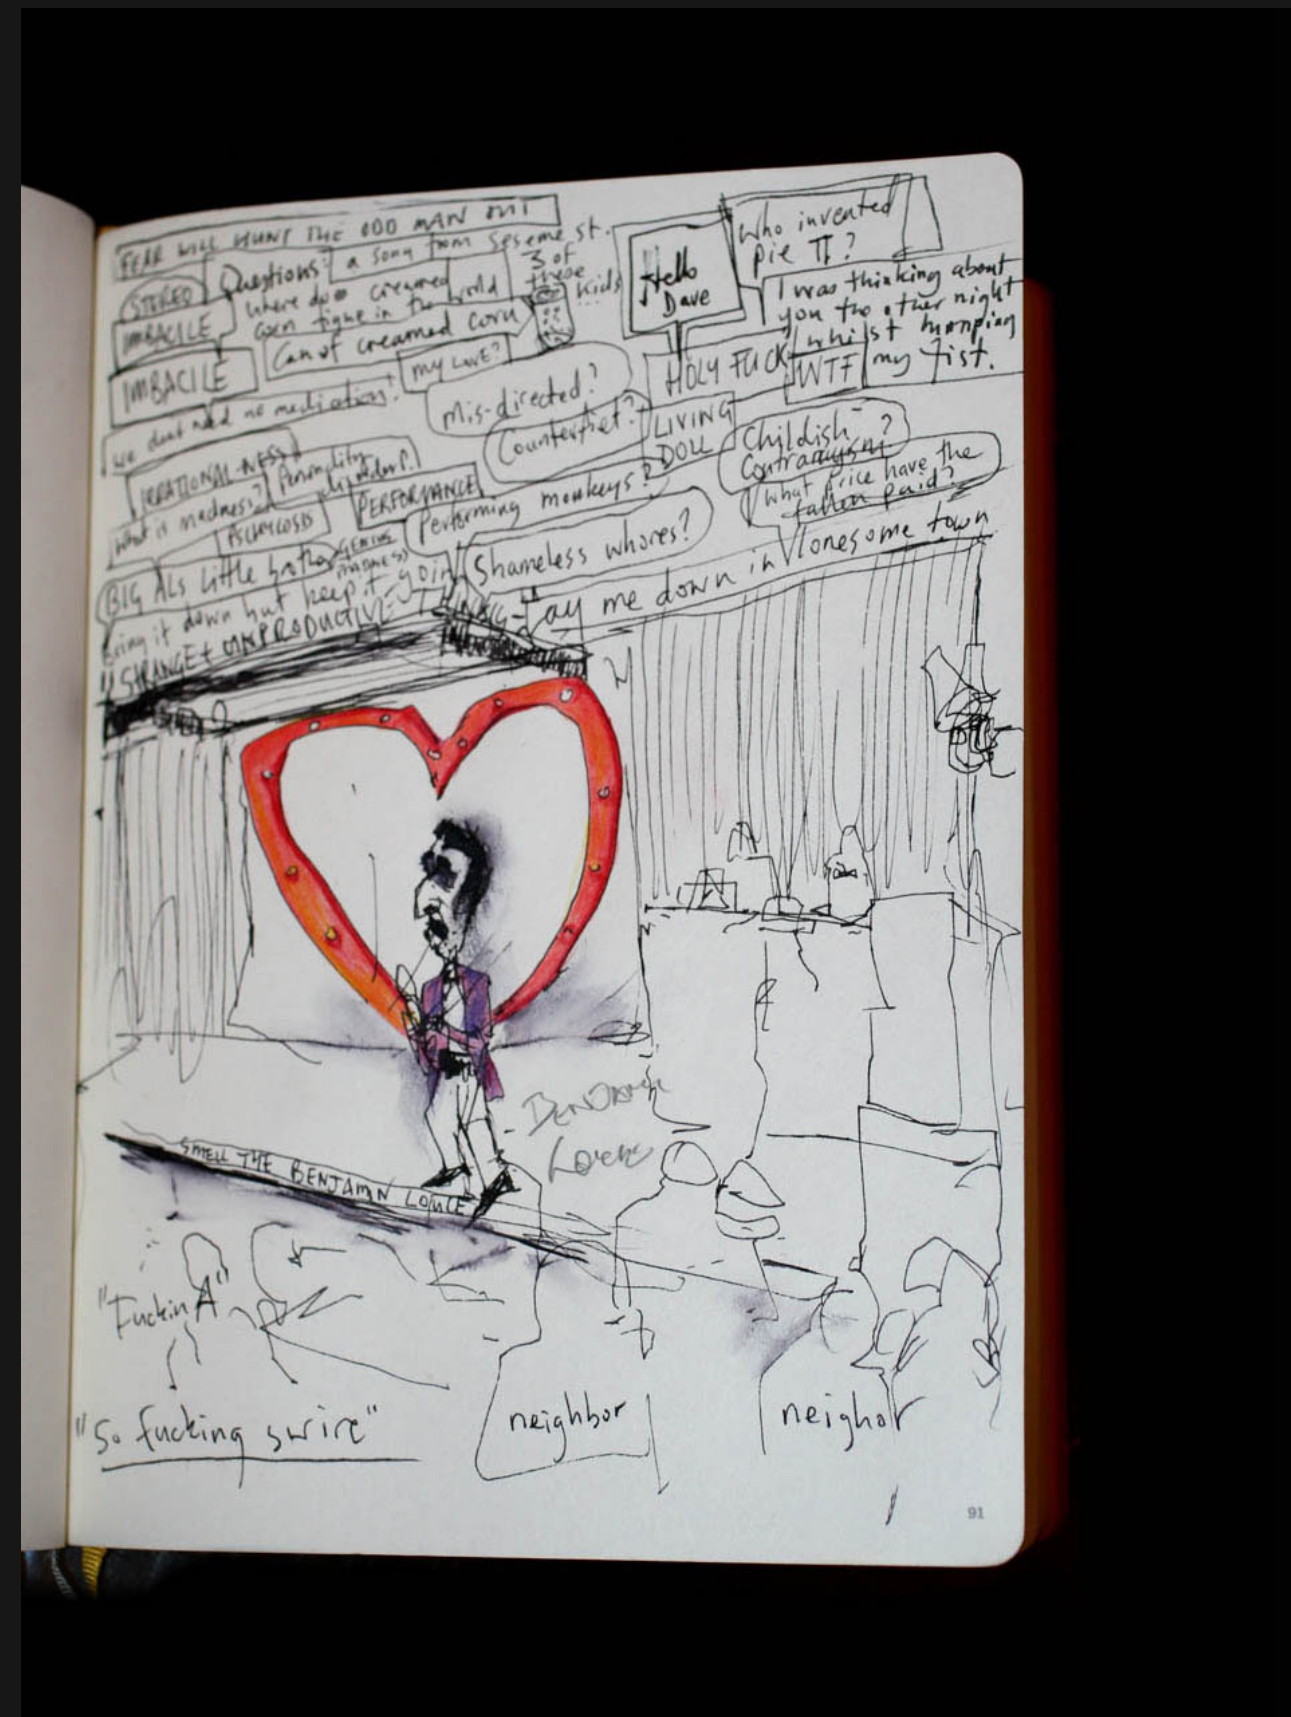 FEAR WILL HUNT THE ODD MAN OUT
STEREO
IMBACILE
Questions:
a song from Seseme st.
where does creamed
corn figure in the world
3 of
these
kids
Can of creamed corn
Hello
Dave
Who invented
pie π?
I was thinking about
you the other night
whilst humping
my fist.
IMBACILE
MY LOVE?
HOLY FUCK
WTF
we dont need no mediation!
Mis-directed?
Counterfiet?
LIVING
DOLL
Childish
Contraryism?
What price have the
fallen paid?
IRRATIONAL-NESS
Personality
What is madness?
PSCHYCOSIS
PERFORMANCE
Performing monkeys?
Shameless whores?
BIG ALS Little brother
GENIUS
Bring it down but keep it going
"STRANGE + UNPRODUCTIVE
Lay me down in lonesome town
BENJAMIN
SMELL THE BENJAMIN LOUCE
"Fuckin A"
"So fucking swire"
neighbor
neighor
91